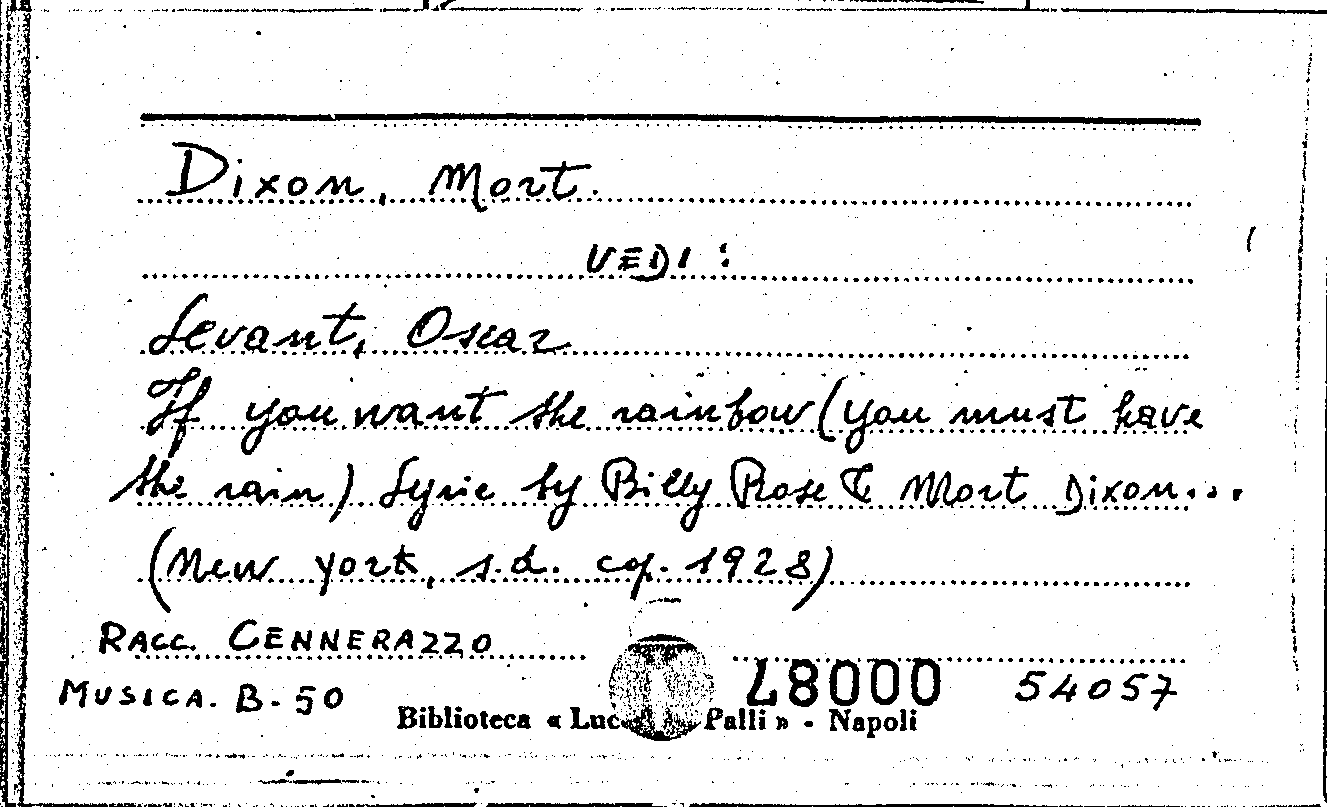 Dixon, Mort.
VEDI:
Levant, Oscar
If you want the rainbow (you must have
the rain) Lyric by Billy Rose & Mort Dixon...
(New York, s.d. cop. 1928)
RACC. CENNERAZZO
MUSICA. B-50
48000 54057
Biblioteca « Luc Palli » - Napoli